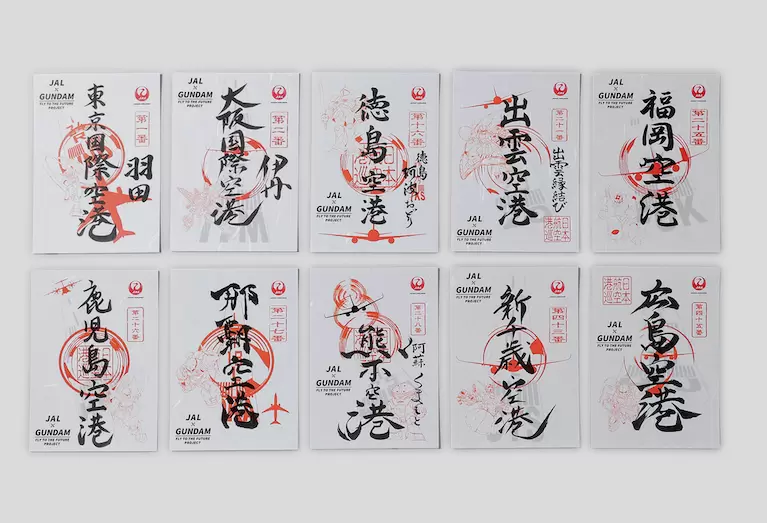 JAL
×
GUNDAM
FLY TO THE FUTURE
PROJECT
第一番
東京国際空港
羽田
JAL
×
GUNDAM
FLY TO THE FUTURE
PROJECT
第二番
大阪国際空港
伊丹
第十六番
徳島空港
徳島
阿波おどり
JAL
×
GUNDAM
FLY TO THE FUTURE
PROJECT
出雲空港
出雲縁結び
JAL
×
GUNDAM
FLY TO THE FUTURE
PROJECT
日本
航空
港巡
JAL
×
GUNDAM
FLY TO THE FUTURE
PROJECT
第二十五番
福岡空港
第二十六番
鹿児島空港
JAL
×
GUNDAM
FLY TO THE FUTURE
PROJECT
第二十七番
那覇空港
JAL
×
GUNDAM
FLY TO THE FUTURE
PROJECT
熊本空港
阿蘇くまもと
JAL
×
GUNDAM
FLY TO THE FUTURE
PROJECT
第四十三番
新千歳空港
JAL
×
GUNDAM
FLY TO THE FUTURE
PROJECT
日本
航空
港巡
第四十五番
広島空港
JAL
×
GUNDAM
FLY TO THE FUTURE
PROJECT